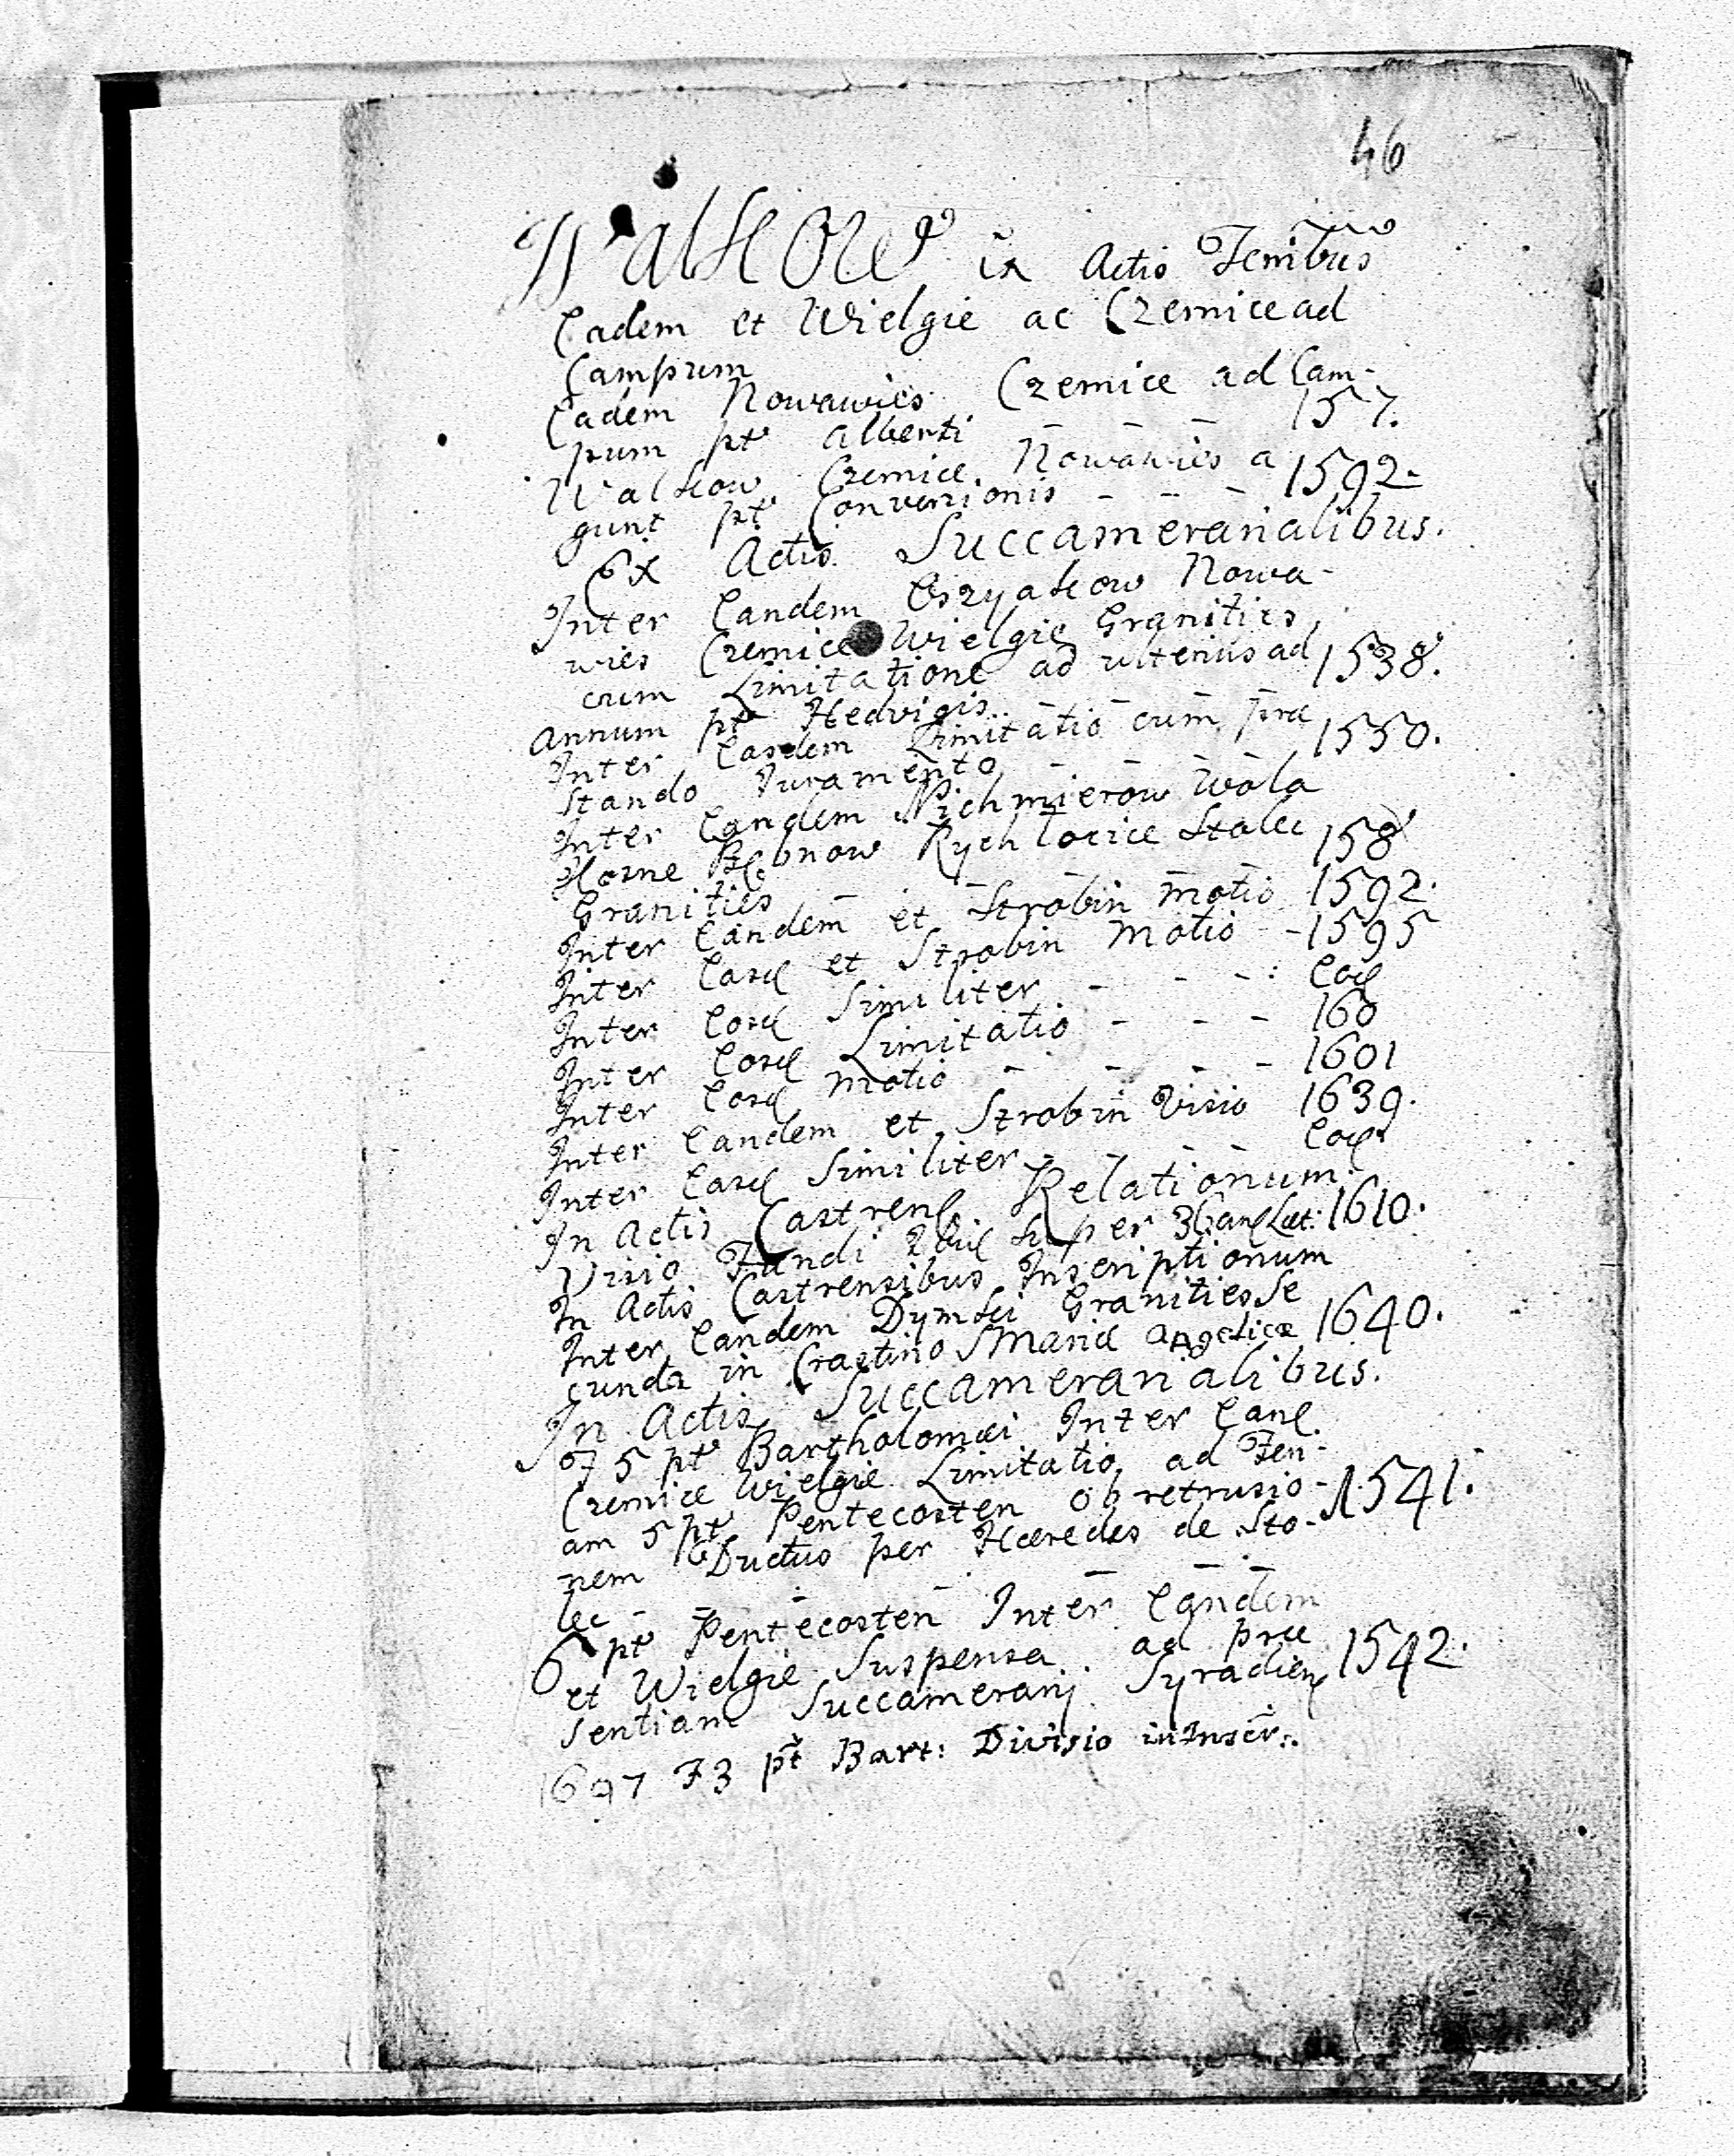 46
Walkow in Actis Terribus
Eadem et Wielgie ac Czernice ad
Campum
Eadem Nowawies Czernice ad Cam-
pum pt Alberti - - - 157.
Walkow Czernice Nowawies a
gunt pt Conversionis - - - 1592.
Ex Actis Succamerarialibus.
Inter Eandem Nowa-
wies Czernice Wielgie Granities
cum Limitatione ad ulterius ad
annum pt Hedvigis. 1538.
Inter Easdem Limitatio cum præ
stando Juramento - - - 1550.
Inter Eandem Nichmierow Wola
Rychlocice Stolec
Granities - - - 158
Inter Eandem et Strobin Motio 1592.
Inter Easd et Strobin Motio - 1595
Inter Eosd Similiter - - - Eod
Inter Eosd Limitatio - - - 160
Inter Eosd Motio - - - - 1601
Inter Eandem et Strobin Visio 1639.
Inter Easd Similiter - - - Eod
In Actis Castrens Relationum.
Visio Fundi super 1610.
In Actis Castrensibus Inscriptionum
Inter Eandem Dymki Granities Se
cunda in Crastino S Mariæ Angelicæ 1640.
In Actis Succamerarialibus.
F 5 pt Bartholomæi Inter Eand
Czernice Wielgie Limitatio ad Fen-
am 5 pt Pentecosten ob retrusio-
nem Ductus per Hæredes de Sto- 1541.
lec - - - - -
6 pt Pentecosten Inter Eandem
et Wielgie Suspensa ad præ
sentiam Succamerarij Syradien 1542.
1697 F 3 pt Bart: Divisio in Inscr:.